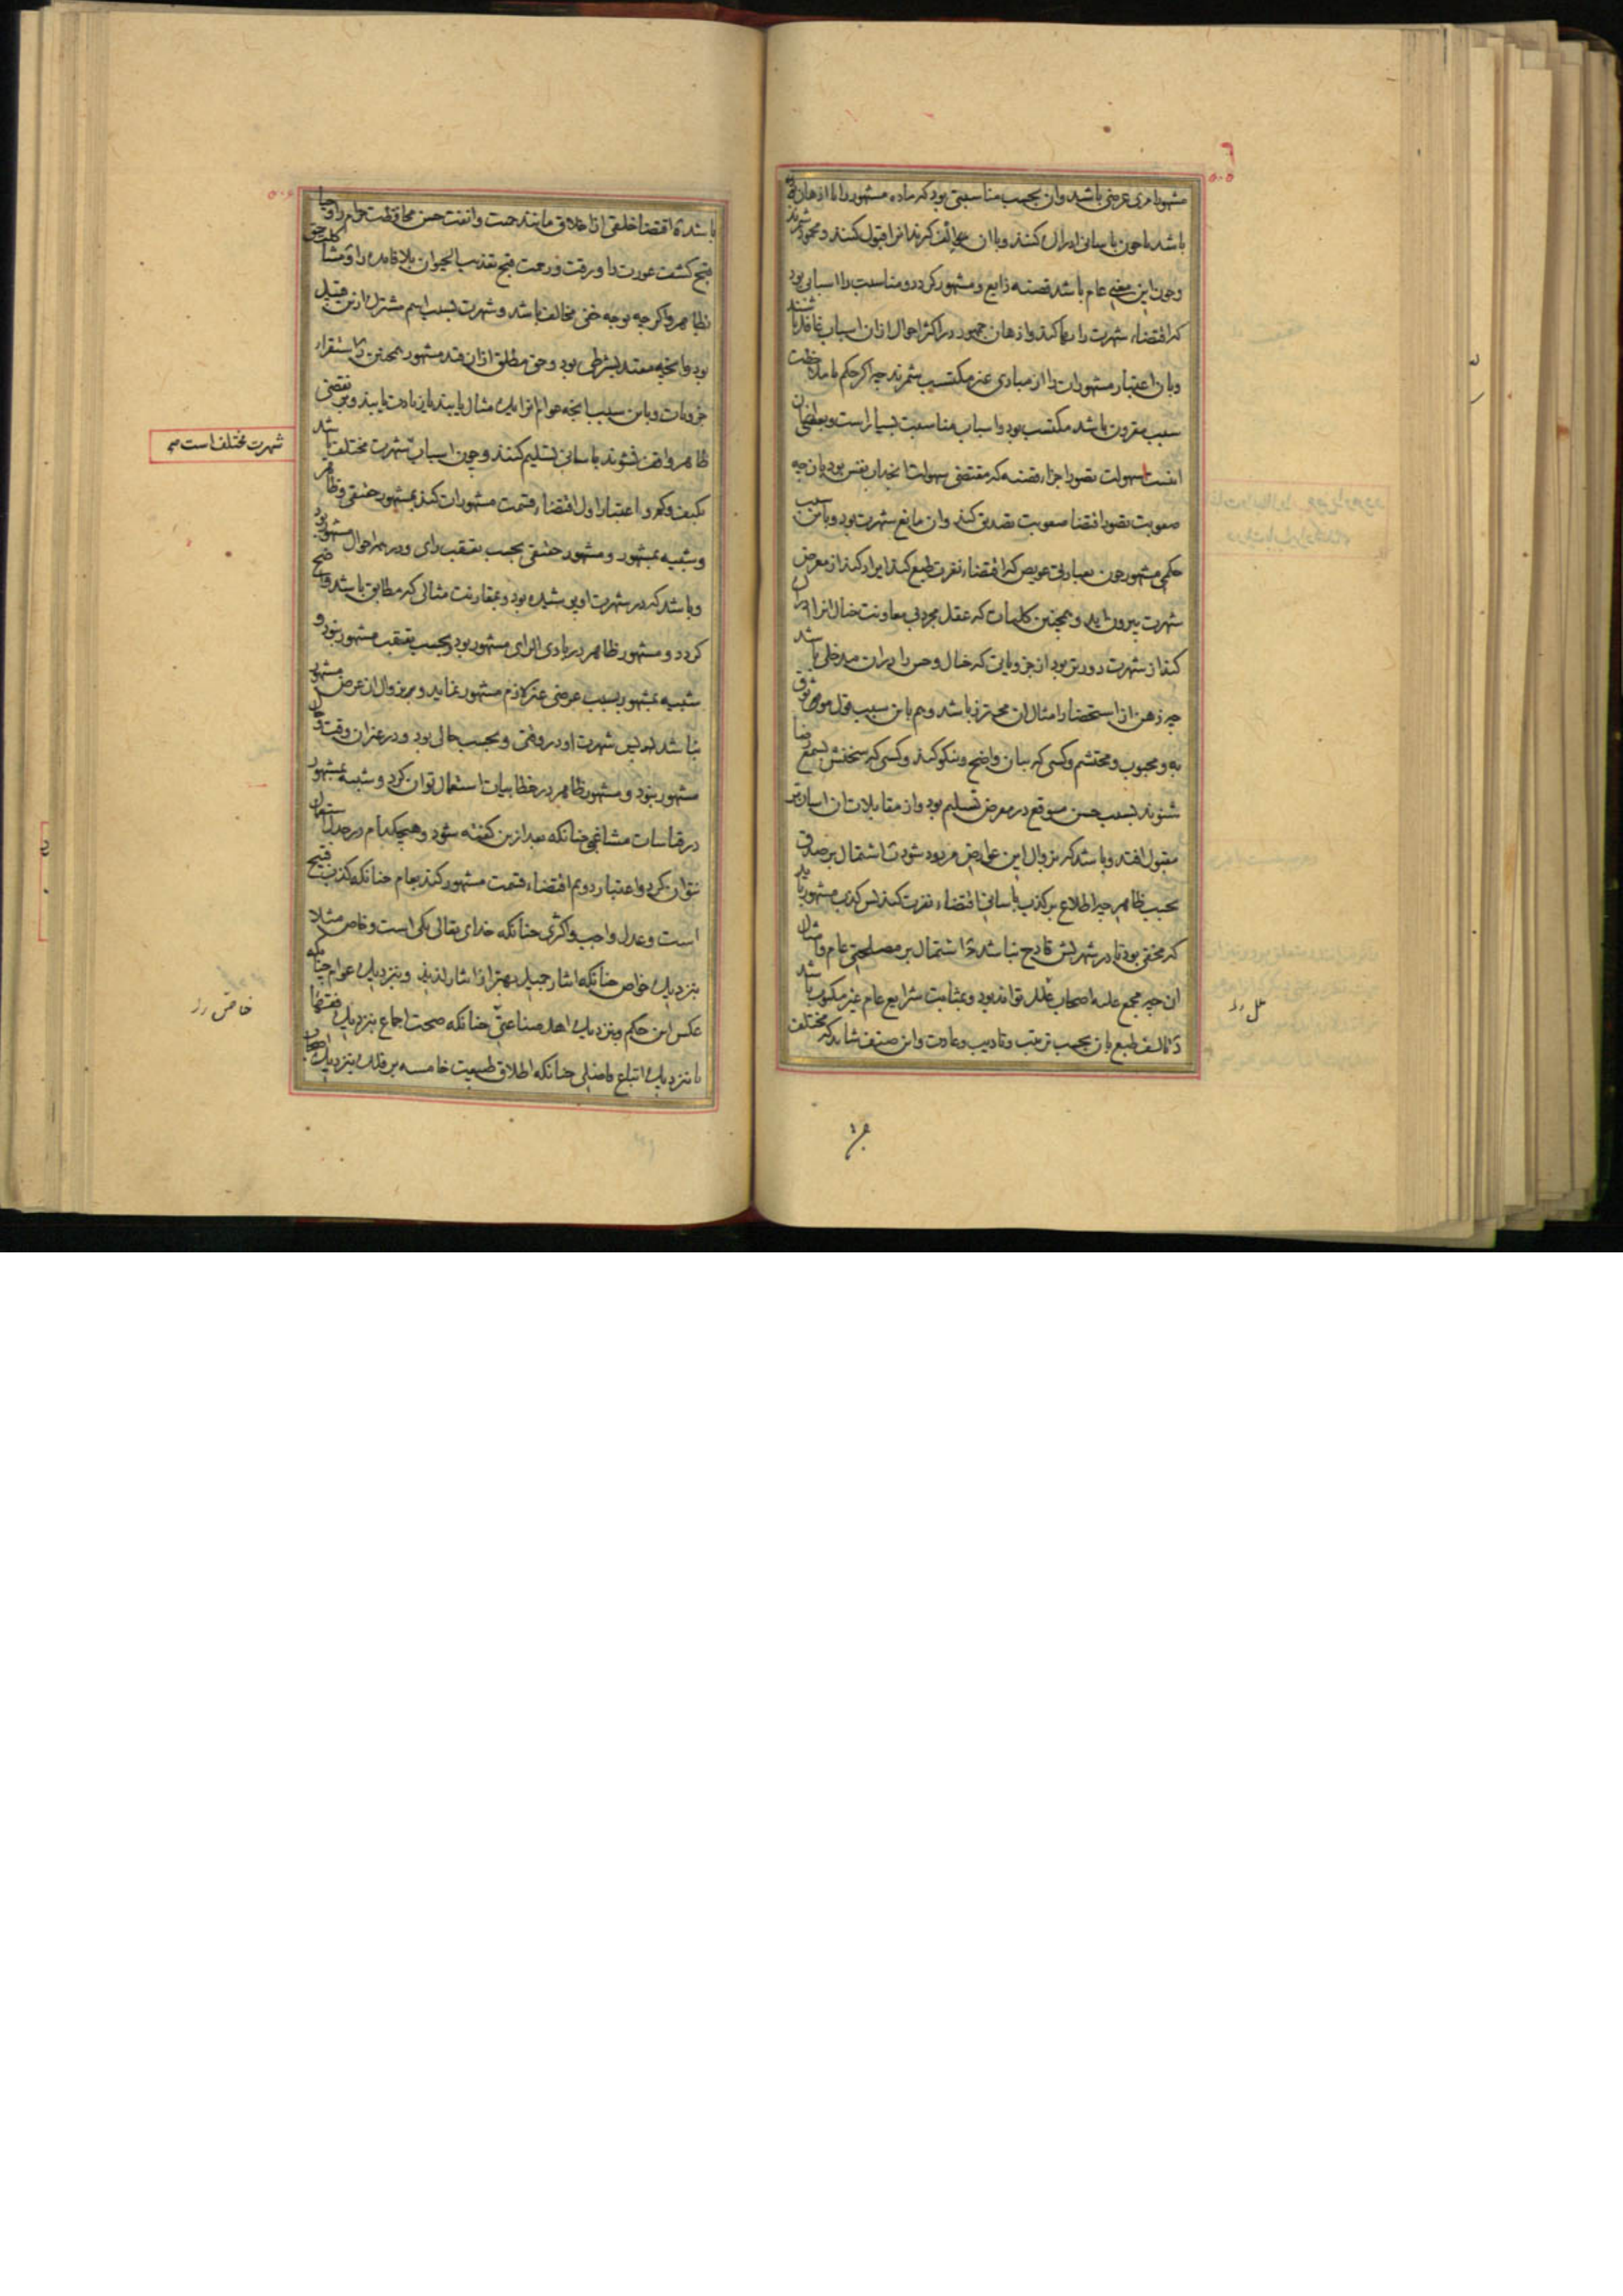 ۵۰۵
مشهور امری عرضی باشد وان بحسب مناسبتی بود که ماده مشهور را با اذهان
باشد تا چون باسانی ادراک کنند وبا ان الف کیرند انرا قبول کنند و محمود شمرند
وچون این معنی عام باشد قضیه ذایع و مشهور کردد ومناسبت را اسبابی بود
که اقتضاء شهرت کند واذهان جمهور در اکثر احوال ازان اسباب غافل باشند
وبان اعتبار مشهورات را از مبادی غیر مکتسب شمرند چه اکر حکم با ملاحظت
سبب مقرون باشد مکتسب بود واسباب مناسبت بسیار است وبعضی ازان
اینست سهولت تصور اجزاء قضیه که مقتضی سهولت انجذاب نفس بود بان چه
صعوبت تصور اقتضا صعوبت تصدیق کند وان مانع شهرت بود وباین سبب
حکمی مشهور چون بعبارتی عویص که اقتضاء نفرت طبع کند ایراد کنند از معرض
شهرت بیرون اید وهمچنین کلیات که عقل مجرد بی معاونت خیال ادراک
کند از شهرت دورتر بود از جزویاتی که خیال وحس را دران مدخلی باشد
چه ذهن از استحضار امثال ان محترز باشد وهم باین سبب قول موثوق
به ومحبوب ومحتشم وکسی که بیان واضح ونیکو کند وکسی که سخنش بسمع رضا
شنوند بسبب حسن موقع در معرض تسلیم بود واز مقابلات ان اسان‌تر
مقبول افتد وباشد که بزوال این عوارض مردود شود ب اشتمال بر صدق
بحسب ظاهر چه اطلاع بر کذب باسانی اقتضاء نفرت کند پس کذب مشهور باید
که مخفی بود تا در شهرتش قادح نباشد ج اشتمال بر مصلحتی عام
ان چه مجمع علیه اصحاب ملل تواند بود وبمثابت شرایع عام غیر مکتوب باشد
د تالف طبع بان بحسب ترتیب وتادیب وعادت واین صنف شاید که مختلف
۵۰۶
باشد ه اقتضا خلقی از اخلاق مانند حمیت وانفت حسن محافظت حرم را وحیا
قبح کشف عورت را ورقت ورحمت قبح تعذیب الحیوان بلا فایده را و مشا کلت حق
ظاهر واکر چه بوجه خفی مخالف باشد وشهرت بسبب اسم مشترک ازین قبیل
بود وانچه مقید بشرطی بود وحق مطلق ازان قید مشهور همچنین ز استقراء
جزویات وباین سبب انچه عوام انرا یک مثال یابند یا زیادت یابند وبر نقضی
ظاهر واقف نشوند باسانی تسلیم کنند وچون اسباب شهرت مختلف باشد
شهرت مختلف است صح
بکیف وکم و اعتبار اول اقتضاء قسمت مشهورات کند بمشهور حقیقی وظاهر
وشبیه بمشهور ومشهور حقیقی بحسب تعقب رای ودر همه احوال مشهور بود
وباشد که در شهرت اولی پوشیده بود وبمقارنت مثالی که مطابق باشد واضح
کردد و مشهور ظاهر در بادی الرای مشهور بود وبحسب تعقب مشهور نبود و
شبیه بمشهور بسبب عرضی غیر لازم مشهور نماید وبر زوال ان عرض مشهور
نباشد پس شهرت او در وقتی وبحسب حالی بود ودر غیر ان وقت وحال
مشهور نبود و مشهور ظاهر در خطابیات استعمال توان کرد و شبیه بمشهور
در قیاسات مشاغبی چنانکه بعد ازین کفته شود وهیچکدام در جدل استعمال
نتوان کرد واعتبار دوم اقتضاء قسمت مشهور کند بعام چنانکه کذب قبیح
است وعدل واجب واکثری چنانکه خدای تعالی یکی است وخاص مثلا
بنزدیک خواص چنانکه ایثار جمیل بهتر از ایثار لذیذ وبنزدیک عوام چنانکه
عکس این حکم وبنزدیک اهل صناعتی چنانکه صحت اجماع بنزدیک فقها
خاص
یا بنزدیک اتباع فاضلی چنانکه اطلاق طبیعت خامسه بر فلک بنزدیک اصحاب